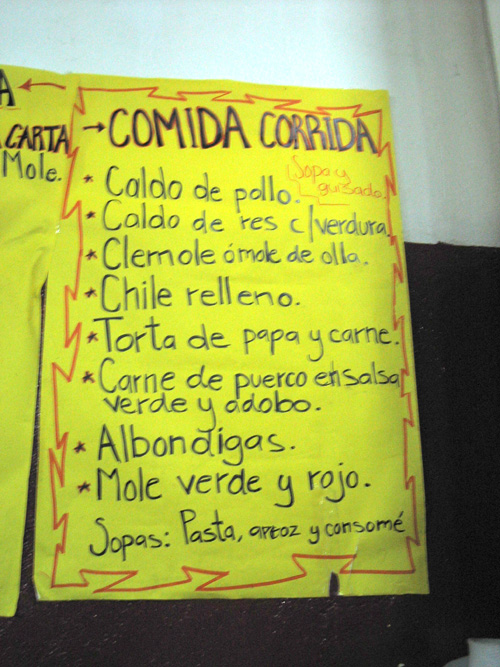 A ←
CARTA
Mole.
→ COMIDA CORRIDA
Sopa y
guisado.
* Caldo de pollo.
* Caldo de res c/verdura.
* Clemole ó mole de olla.
* Chile relleno.
* Torta de papa y carne.
* Carne de puerco en salsa
verde y adobo.
* Albondigas.
* Mole verde y rojo.
Sopas: Pasta, arroz y consomé